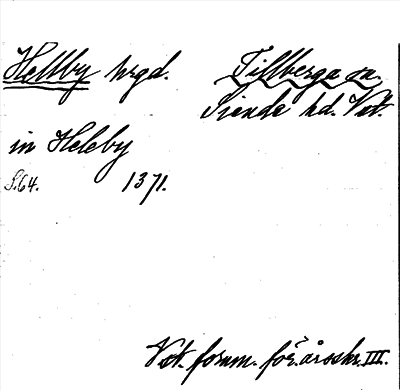 Hellby hrgd.
Tillberga sn,
Siende hd. Vstl.
in Heleby
S. 64. 1371.
Vst. fornm. för. årsskr. III.